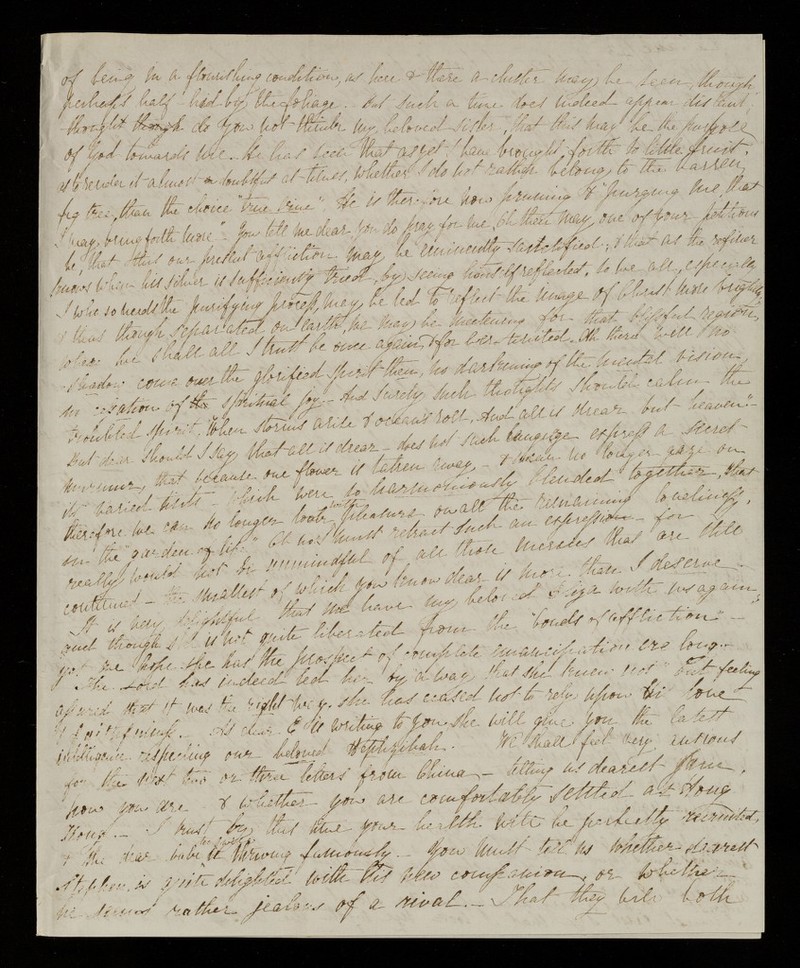 of being in a flourishing condition, as here & there a cluster may be seen, though
perhaps half-hid by the foliage. But such a time does indeed appear distant,
thought do you not think my beloved sister, that this may be the purpose
of God towards me. He has seen that as yet I have brought forth so little fruit,
as to render it almost doubtful at times, whether I do not rather belong to the barren
fig tree, than the choice "true vine" He is therefore now pruning & purging me, that
I may bring forth more. You tell me dear you do pray for me, Oh then may one of your petitions
be, that this our present affliction may be eminently sanctified; & that as the refiner
knows when his silver is sufficiently tried, by seeing himself reflected, so we all, especially
I who so needs the purifying process, may be led to reflect the image of Christ more brightly,
& thus though separated on earth, we may be meetening for that blissful region,
where we shall all I trust be once again & for ever reunited. Oh there "will no
shadow come over the glorified spirit then, no darkening of the mental vision,
no cessation of spiritual joy. And surely such thoughts should calm the
troubled spirit, "When storms arise & oceans roll, And all is drear but heaven".
But dear should I say, that all is drear - does not such language express a secret
murmur, that because one flower is taken away, - & I can no longer gaze on
its varied tints - which were so harmoniously blended together, that
therefore we can no longer look with pleasure on all the remaining loveliness,
in the "garden of life." Oh no I must retract such an expression - for I
really would not be unmindful of all those mercies that are still
continued - the smallest of which you know dear is more than I deserve -
It is very delightful that we have my beloved Eliza with us again,
and though she is not quite liberated from the "bonds of affliction" -
yet we hope she has the prospect of complete emancipation ere long -
The Lord has indeed led her by "a way that she knew not" but feeling
assured that it was the right way, she has ceased not to rely upon his love
& faithfulness. As dear E is writing to you she will give you the latest
intelligence respecting our beloved Hephzibah. We shall feel very anxious
for the next two or three letters from China - telling us dearest Jane,
how you are & whether you are comfortably settled at Hong
Kong. - I trust by this time your health will be perfectly recruited,
& the dear babe thriving famously - You must tell us whether dearest
Stephen is quite delighted with his new companion, or whether
he seems rather jealous of a rival. - That they will both